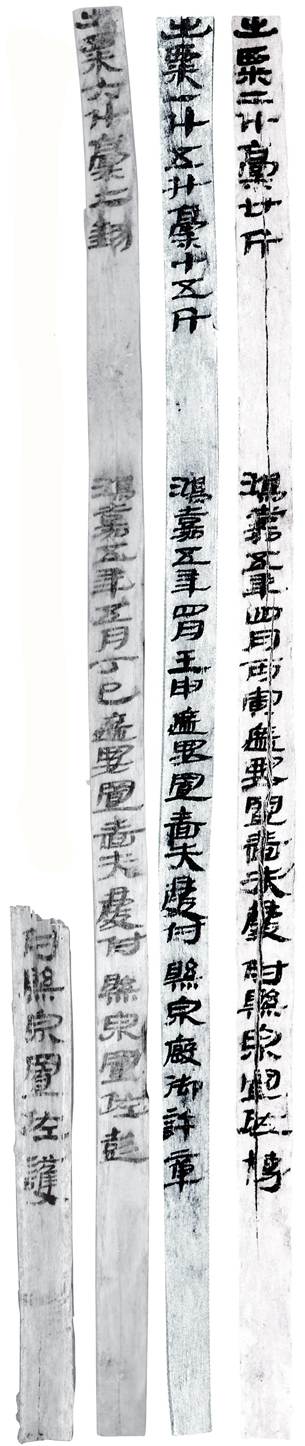 出粟二斗稾廿斤　鴻嘉五年四月丙寅遮要置嗇夫慶付縣泉置佐博
出粟一斗五升稾十五斤　鴻嘉五年四月壬申遮要置嗇夫慶付縣泉廄御許章
出粟六斗稾二鈞　鴻嘉五年五月丁巳遮要置嗇夫慶付縣泉置佐彭
付縣泉置佐護